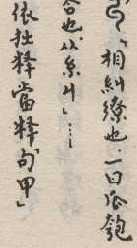 「相糾繚也一曰瓜瓠
合也从糸丩」……
依拙釋當釋「句甲」